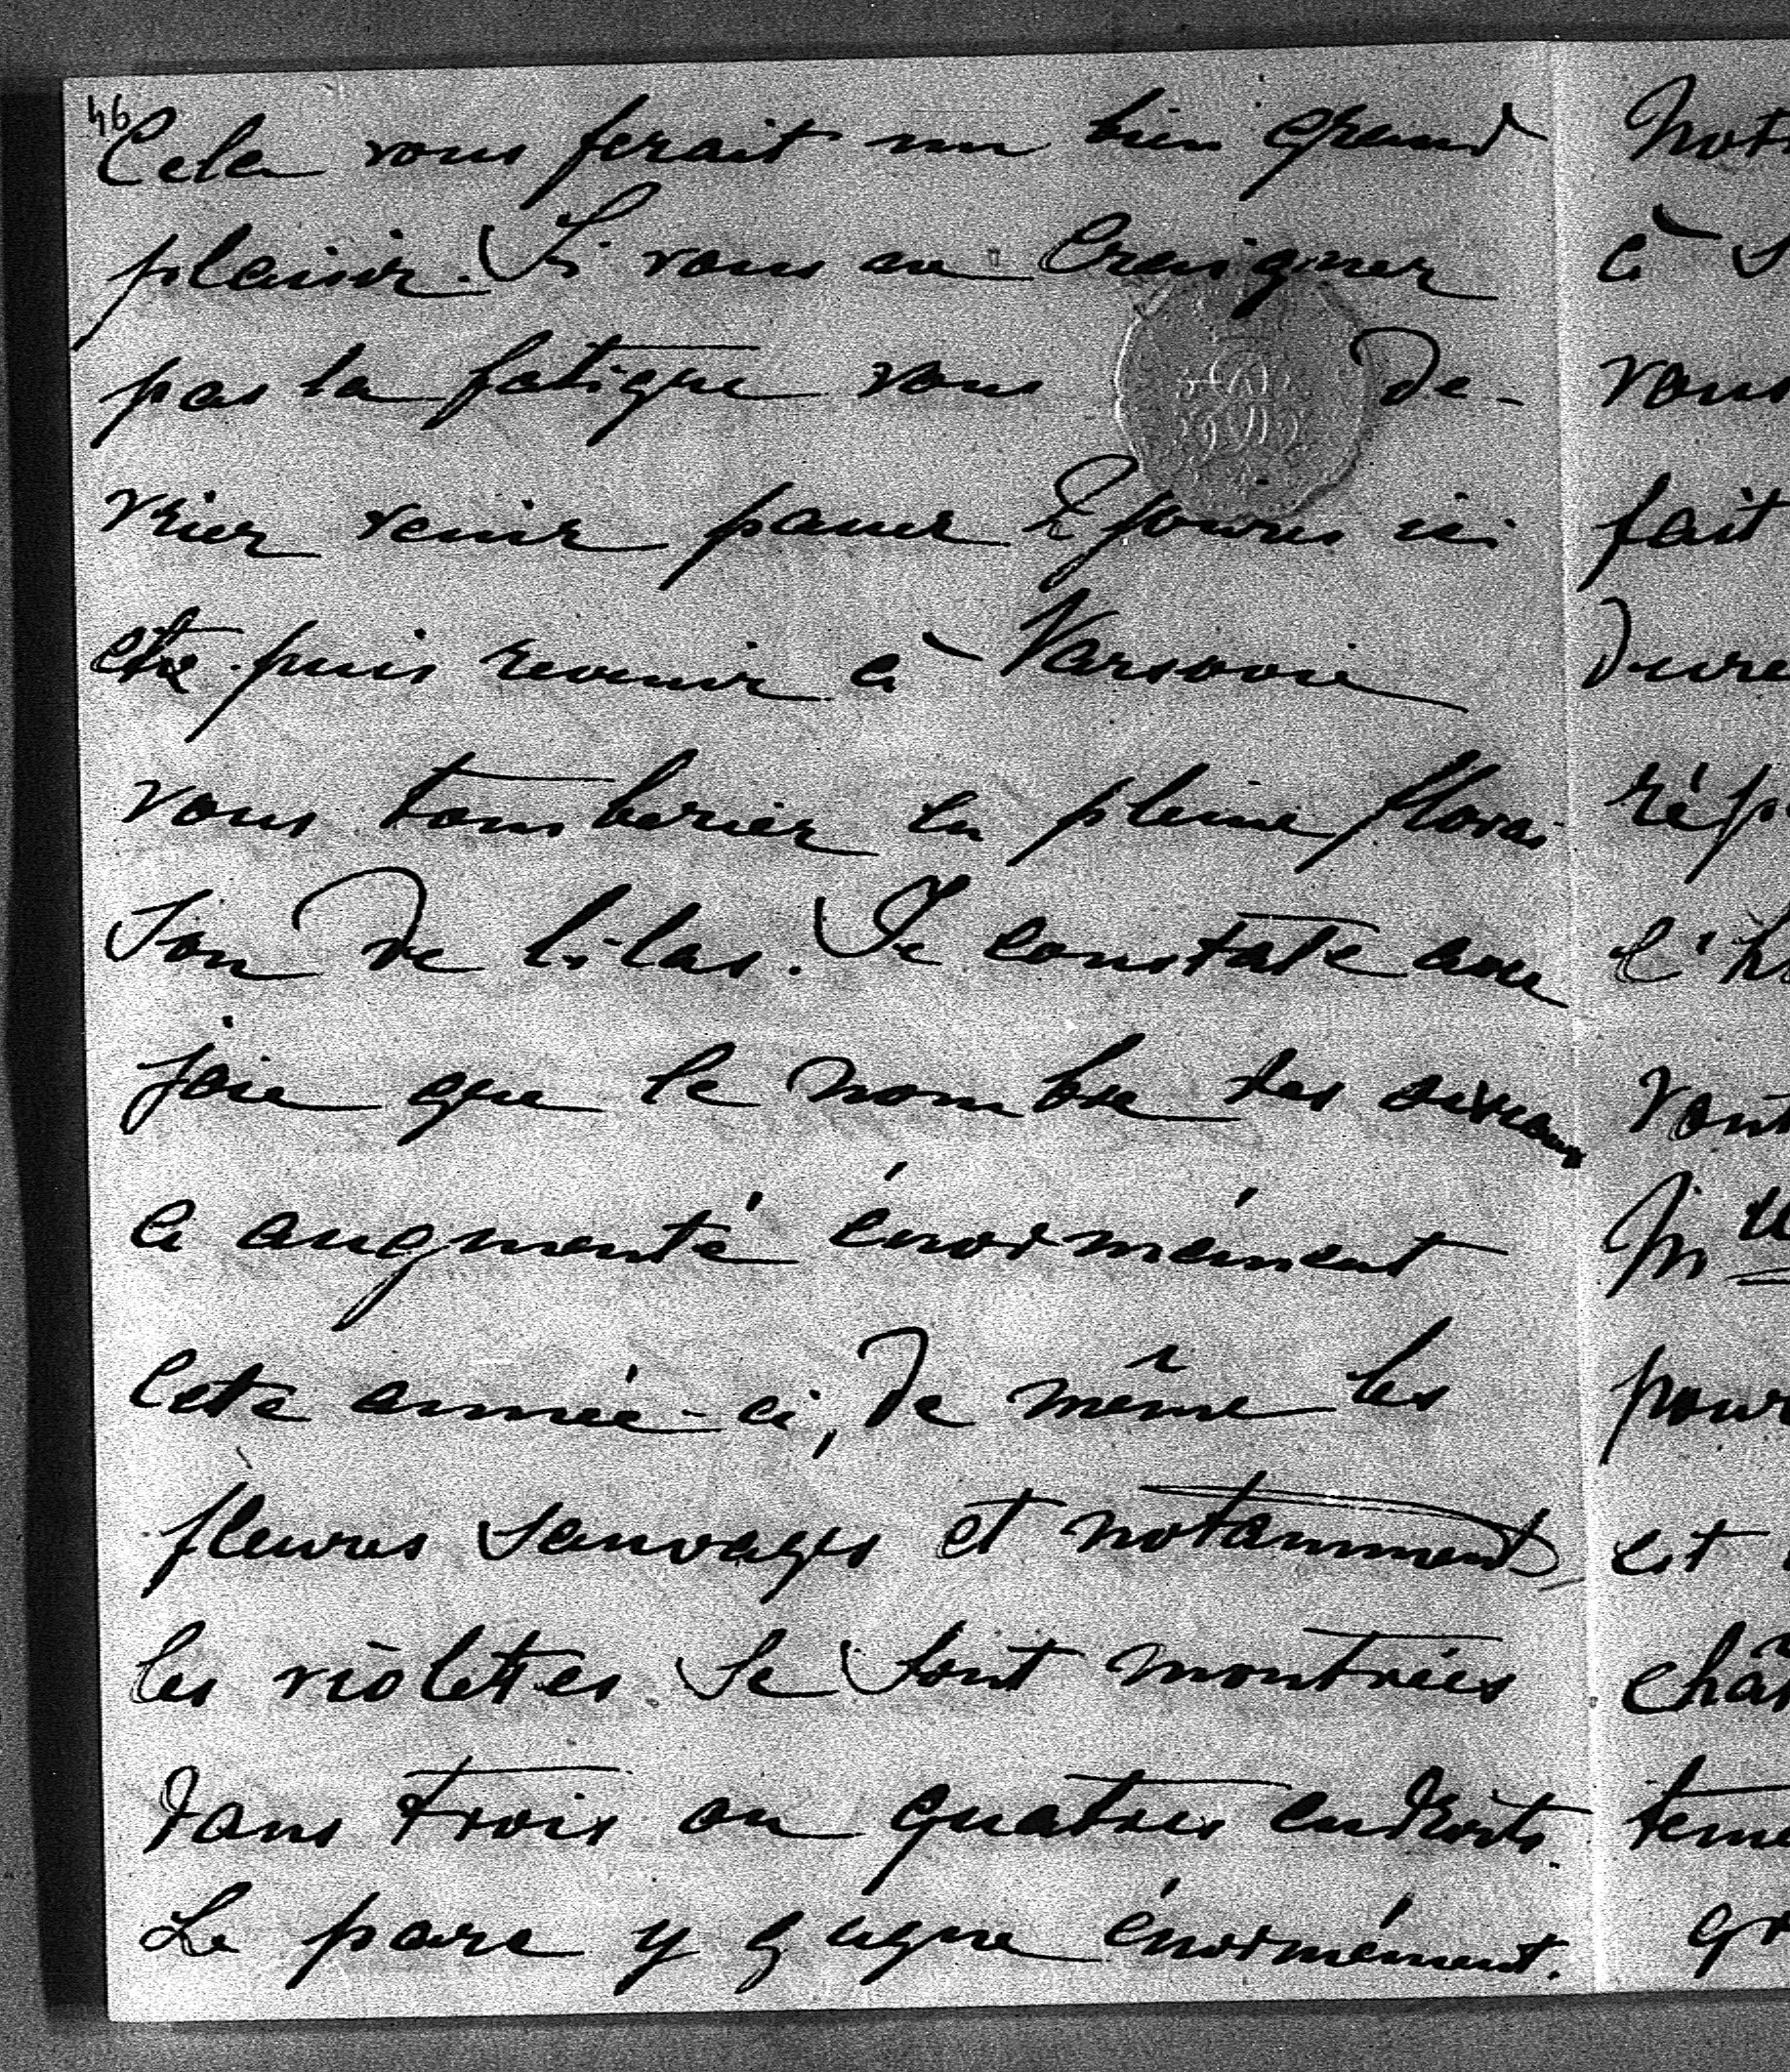 46
Cela vous ferait un bien grand
plaisir. Si vous ne craignez
pas la fatigue vous de-
vriez venir passer jours ici
et puis revenir à Varsovie
vous tomberiez en pleine florai
son de lilas. Je constate avec
joie que le nombre des oiseaux
a augmenté énormément
cette année-ci, de même les
fleurs sauvages et notamment
les violettes se sont montrées
dans trois ou quatres endroits.
Le parc y gagne énormément.
à
vous
fait
pour
est